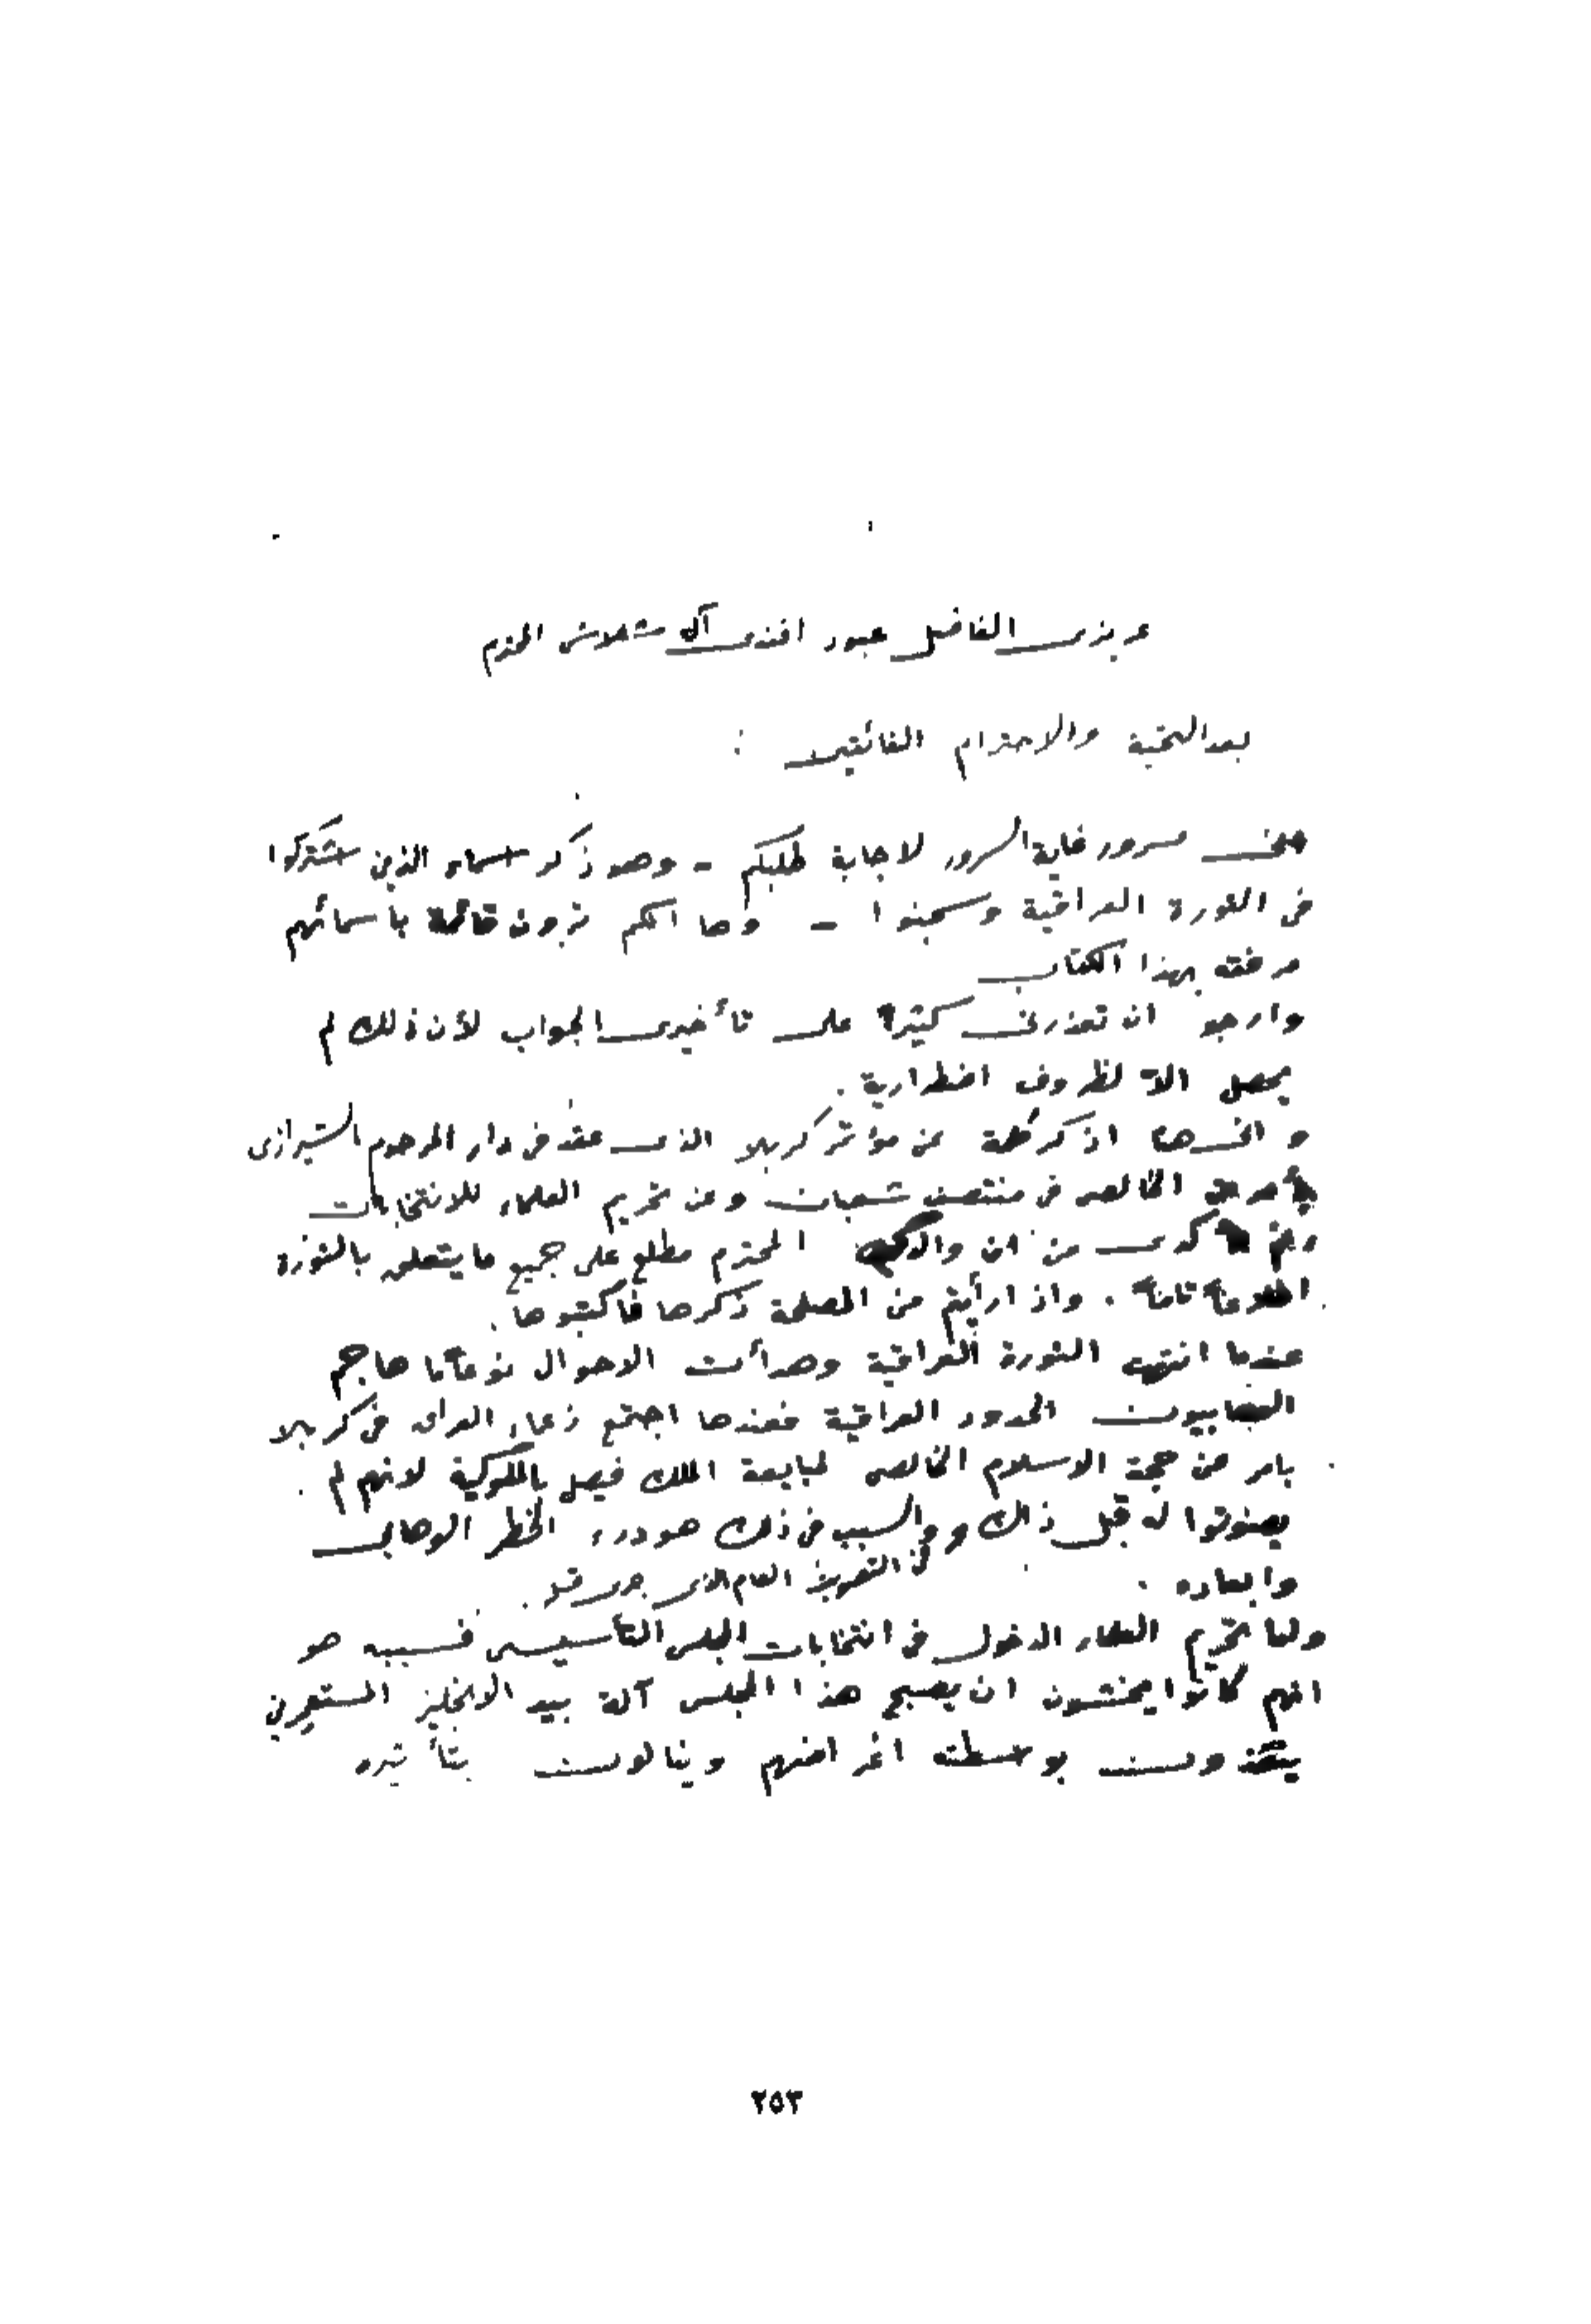 عزيزى الفاضل عبود افندى آل شلاش المحترم
بعد التحية والاحترام الفائقين :
مسرور غاية السرور لاجابة طلبكم - وهو ذكر اسماء الذين اشتركوا
فى الثورة العراقية وسجنوا - وها انكم ترون قائمة باسمائهم
مرفقة بهذا الكتاب
وارجو ان تعذرنى كثيراً على تأخيرى الجواب لأن ذلك لم
يحصل الا لظروف اضطرارية .
اذكر كلمة عن مؤتمر كربلا الذى عقد فى دار المرحوم الشيرازى
الخالصى فى منتصف شعبان وعن تحريم العلماء للانتخابات
رغم من ان والدكم المحترم مطلع على جميع ما يتعلق بالثورة
اطلاعاً تاماً . واذا رأيتم من المصلحة ذكرها فاكتبوها .
عندما انتهت الثورة العراقية وهدأت الاحوال نوعاً ما هاجم
الحدود العراقية فعندها اجتمع زعماء العراق فى كربلا
بامر من حجة الاسلام الخالصى لمبايعة الملك فيصل بالملوكية لانهم لم
يصوتوا له قبل ذاك والسبب فى ذلك هو درء الخطر الوهابى
وابعاده . فى التصويت العام الذى جرى
ولما تحريم العلماء الدخول فى انتخابات المجلس التأسيسى فسببه هو
انهم كانوا يخشون ان يصبح هذا المجلس آلة بيد الانجليز المستعمرين
ينفذون بوسطته اغراضهم وينالون بتأثيره
٢٥٣